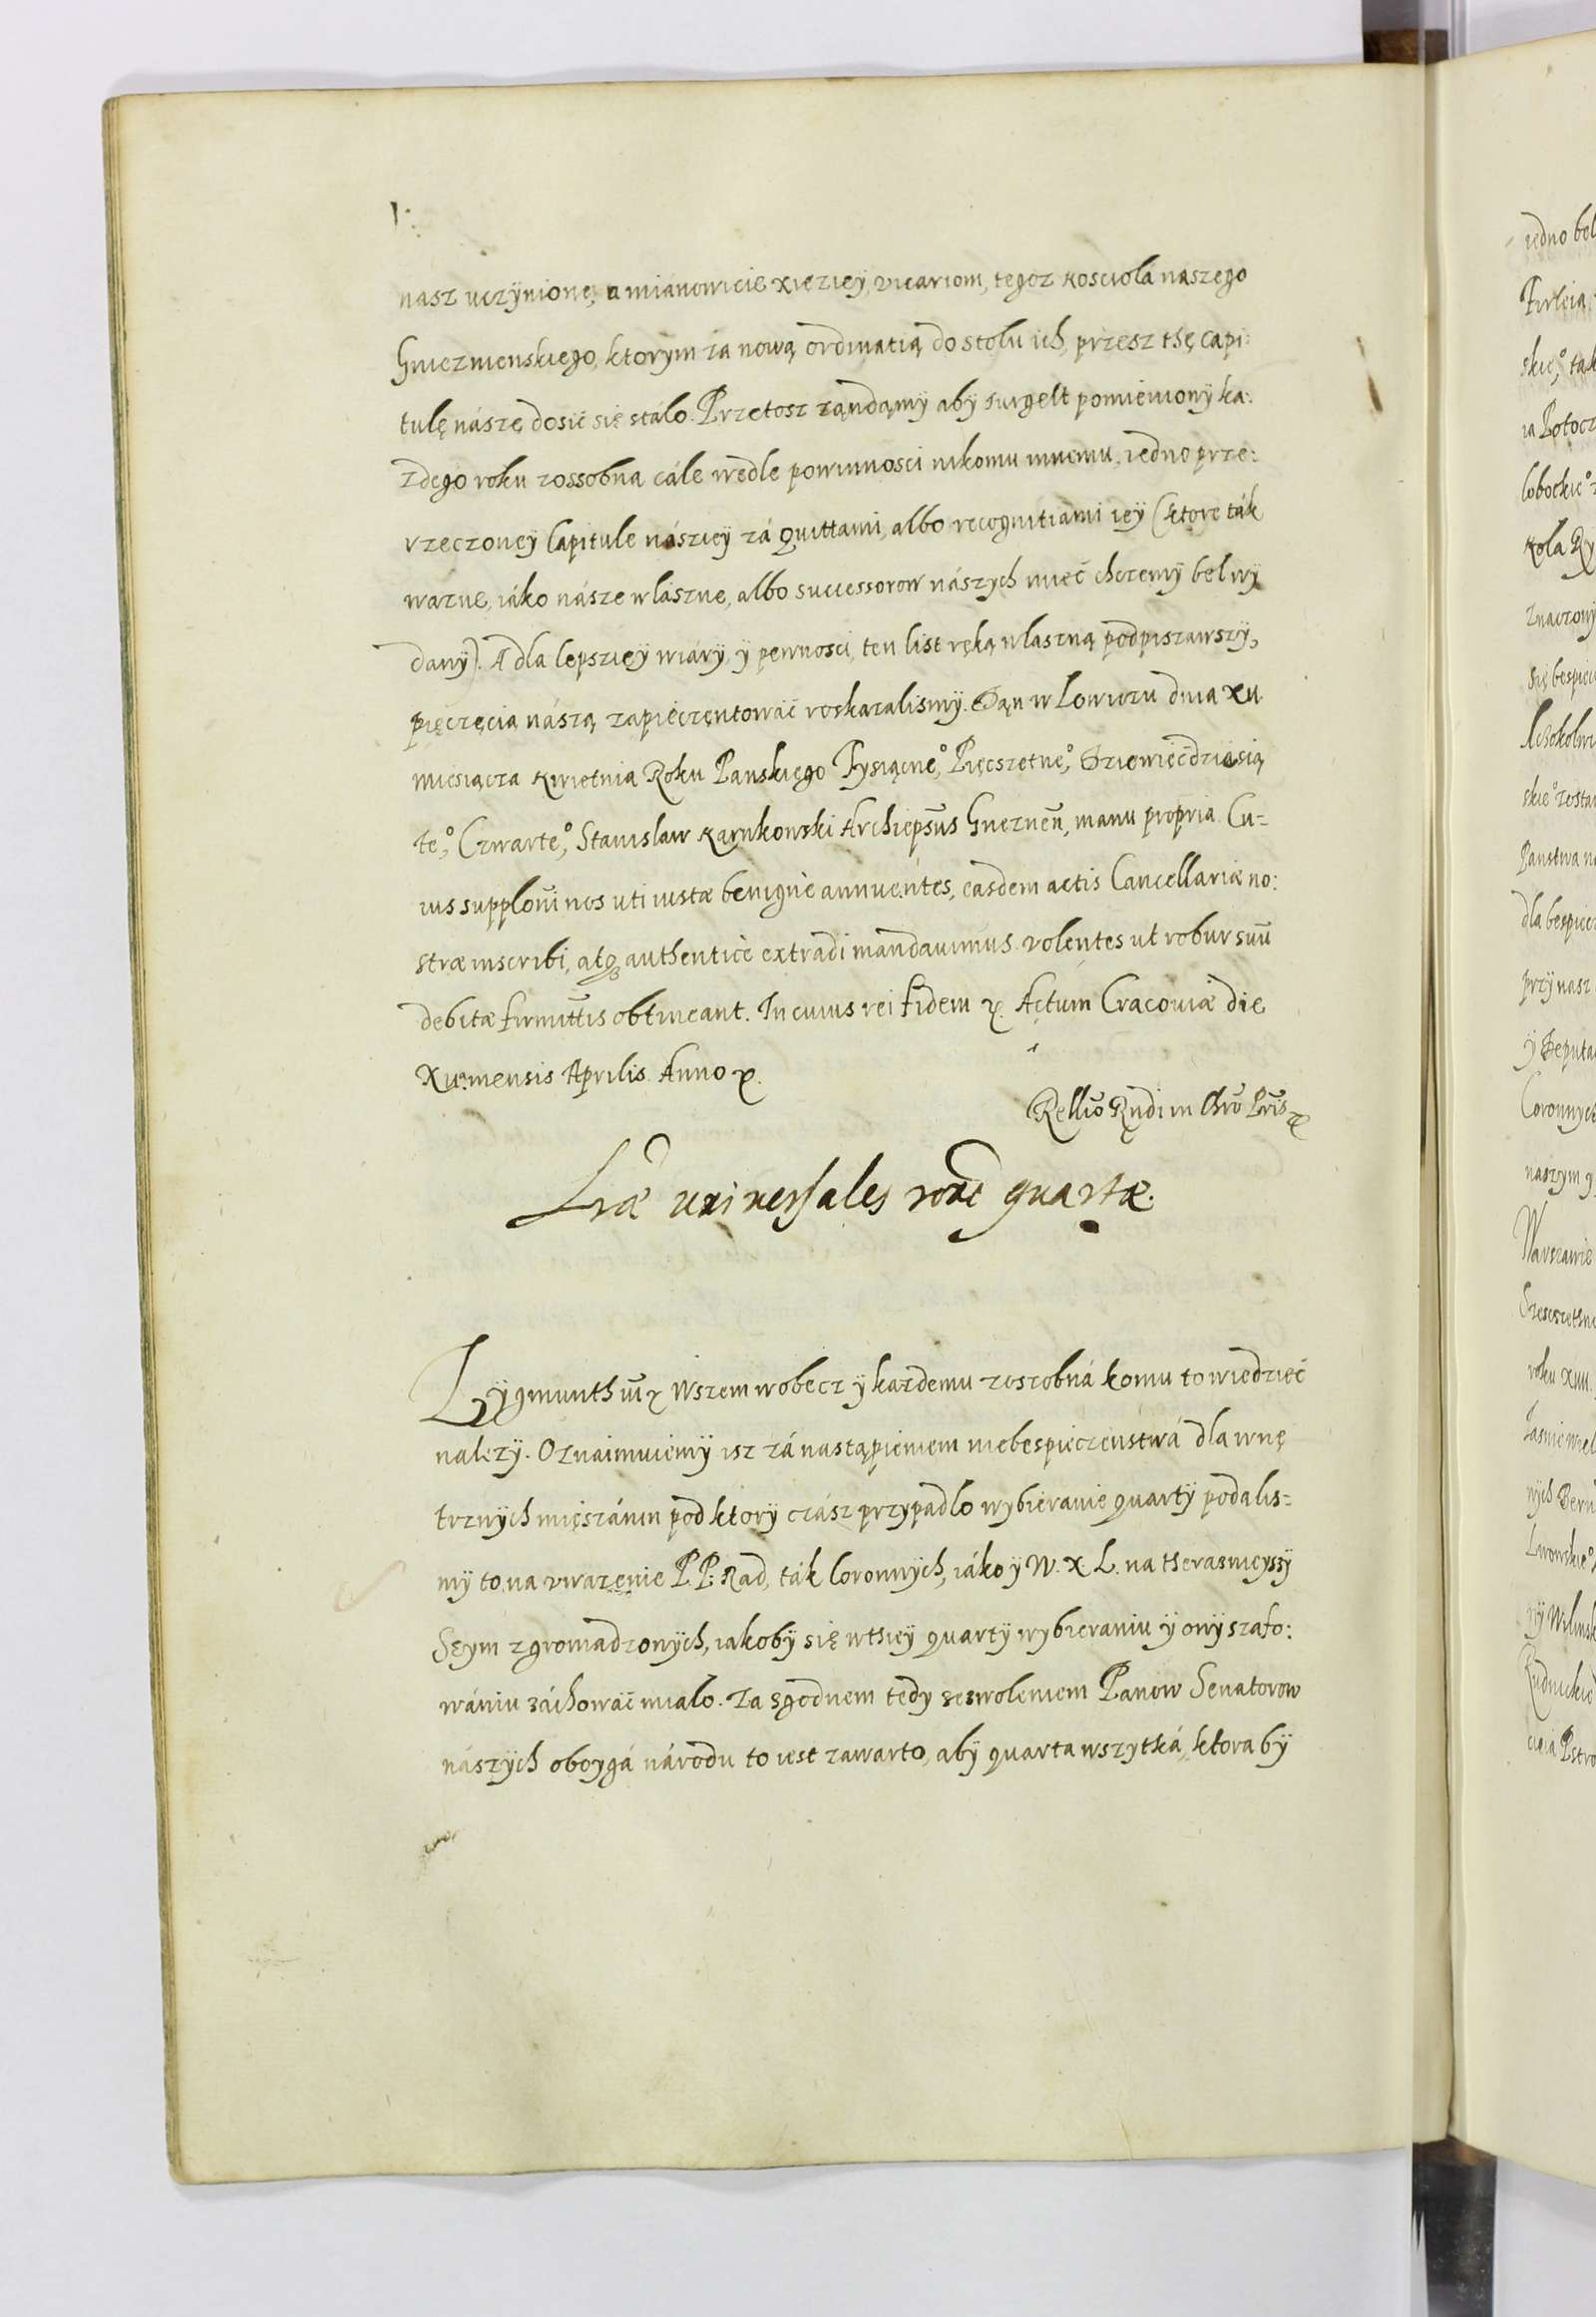 nasz uczÿnione, a miánowicie xięziey, vicariom, tegoz kosciola naszego
Gnieznienskiego, ktorym za nową ordinatią do stolu ich, przesz thę capi:
tulę násze dosić się stálo. Przetosz ząndąmÿ abÿ surgelt pomienionÿ ka:
zdego roku zossobna cále wedle powinnosci nikomu innemu, iedno prze:
rzeczoneÿ Capitule nászieÿ zá quittami, albo recognitiami ieÿ (ktore ták
wazne, iáko násze wlászne, albo successorow nászych mieć chczemÿ bel wÿ
danÿ). A dla lepszieÿ wiárÿ, ÿ pewnosci, ten list ręką wlaszną podpiszawszÿ,
pięczęcią nászą zapieczętowáć roskazalismÿ. Dan w Lowiczu dnia xii
miesiącza kwietnia Roku Panskięgo Tysiącne,° Pięcszetne,° Dziewięćdziesią
te,° Czwarte,° Stanislaw Karnkowski Archiepsus Gneznen, manu propria. Cu-
ius supploni nos uti iustæ benignè annuentes, easdem actis Cancellariæ no:
stræ inscribi, atq authenticè extradi mandauimus. volentes ut robur suū
debitæ firmittis obtineant. In cuius rei fidem ꝛ. Actum Cracouiæ die
Xii mensis Aprilis. Anno ꝛ.
Rellio Rndi in Chro Pris ꝛ
Lræ universales quartæ.
Zÿgmunth iii ꝛ Wszem wobecz ÿ kazdemu zoszobná komu to wiedzieć
nalezÿ. Oznaimuiemÿ isz zá nastąpieniem niebespieczeństwá dla wnę
trznÿch mięszánin pod ktorÿ czász przÿpadlo wÿbieranie quartÿ podalis=
mÿ to na vwazenie P.P: Rad, ták Coronnÿch, iáko ÿ W. X. L. na therasnieÿszÿ
Seym zgromadzonÿch, iakobÿ się w thieÿ quartÿ wybieraniu ÿ onÿ szafo:
wániu záchowáć mialo. Za sgodnem tedy seswoleniem Panow Senatorow
nászÿch oboygá národu to iest zawarto, abÿ quarta wszytká, ktora bÿ